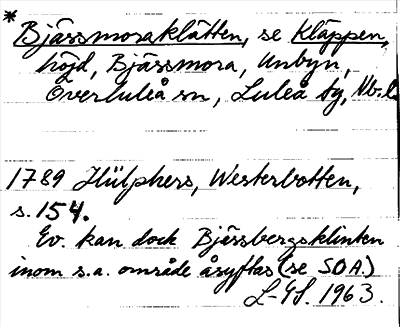 * Bjässmoraklätten, se Kläppen,
höjd, Bjässmora, Unbyn,
Överluleå sn, Luleå tg, Nb.l.
1789 Hülphers, Westerbotten,
s. 154.
Ev. kan dock Bjässbergsklinten
inom s.a. område åsyftas (se SOA.)
L-GL. 1963.